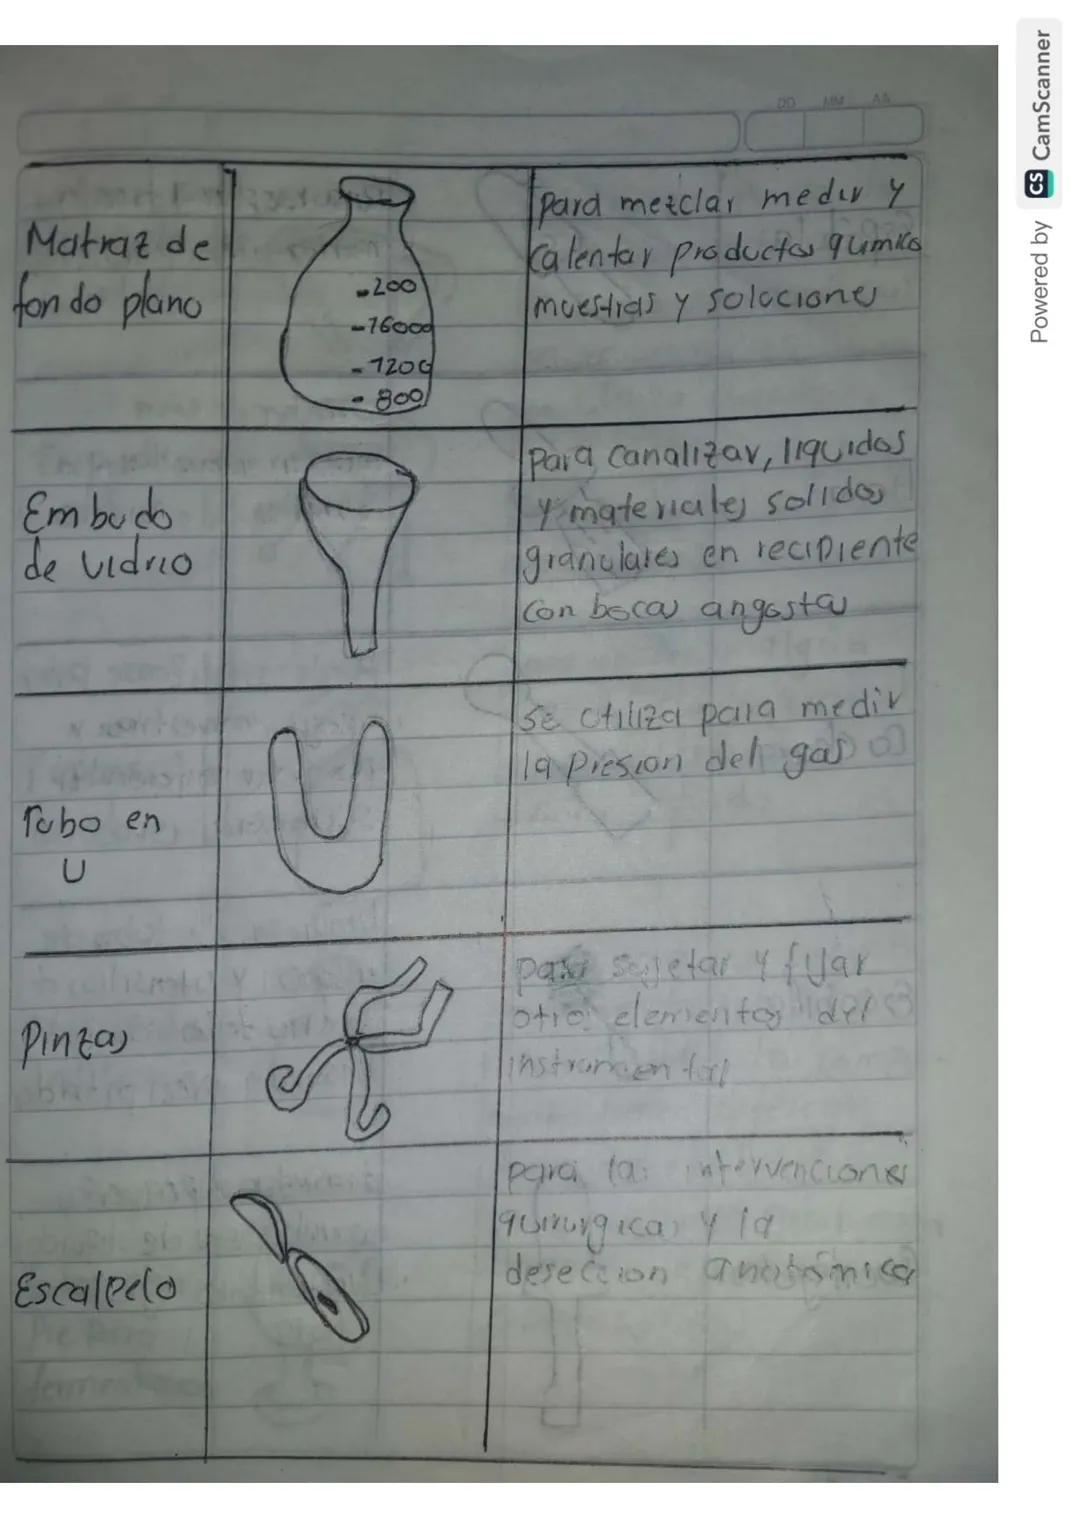 DD MM AA
Matraz de
fondo plano
-200
-16000
-1200
-800
para mezclar medir y
calentar productos quimico
muestras y soluciones
Embudo
de vidrio
Para canalizar, liquidos
y materiales solidos
granulares en recipiente
con bocas angosta
Tubo en
U
se utiliza para medir
la presion del gas
Pinzas
para sujetar y fijar
otro elementos del
instrumental
Escalpelo
para las intervenciones
quirurgicas y la
deseccion anatómica
Powered by CS CamScanner